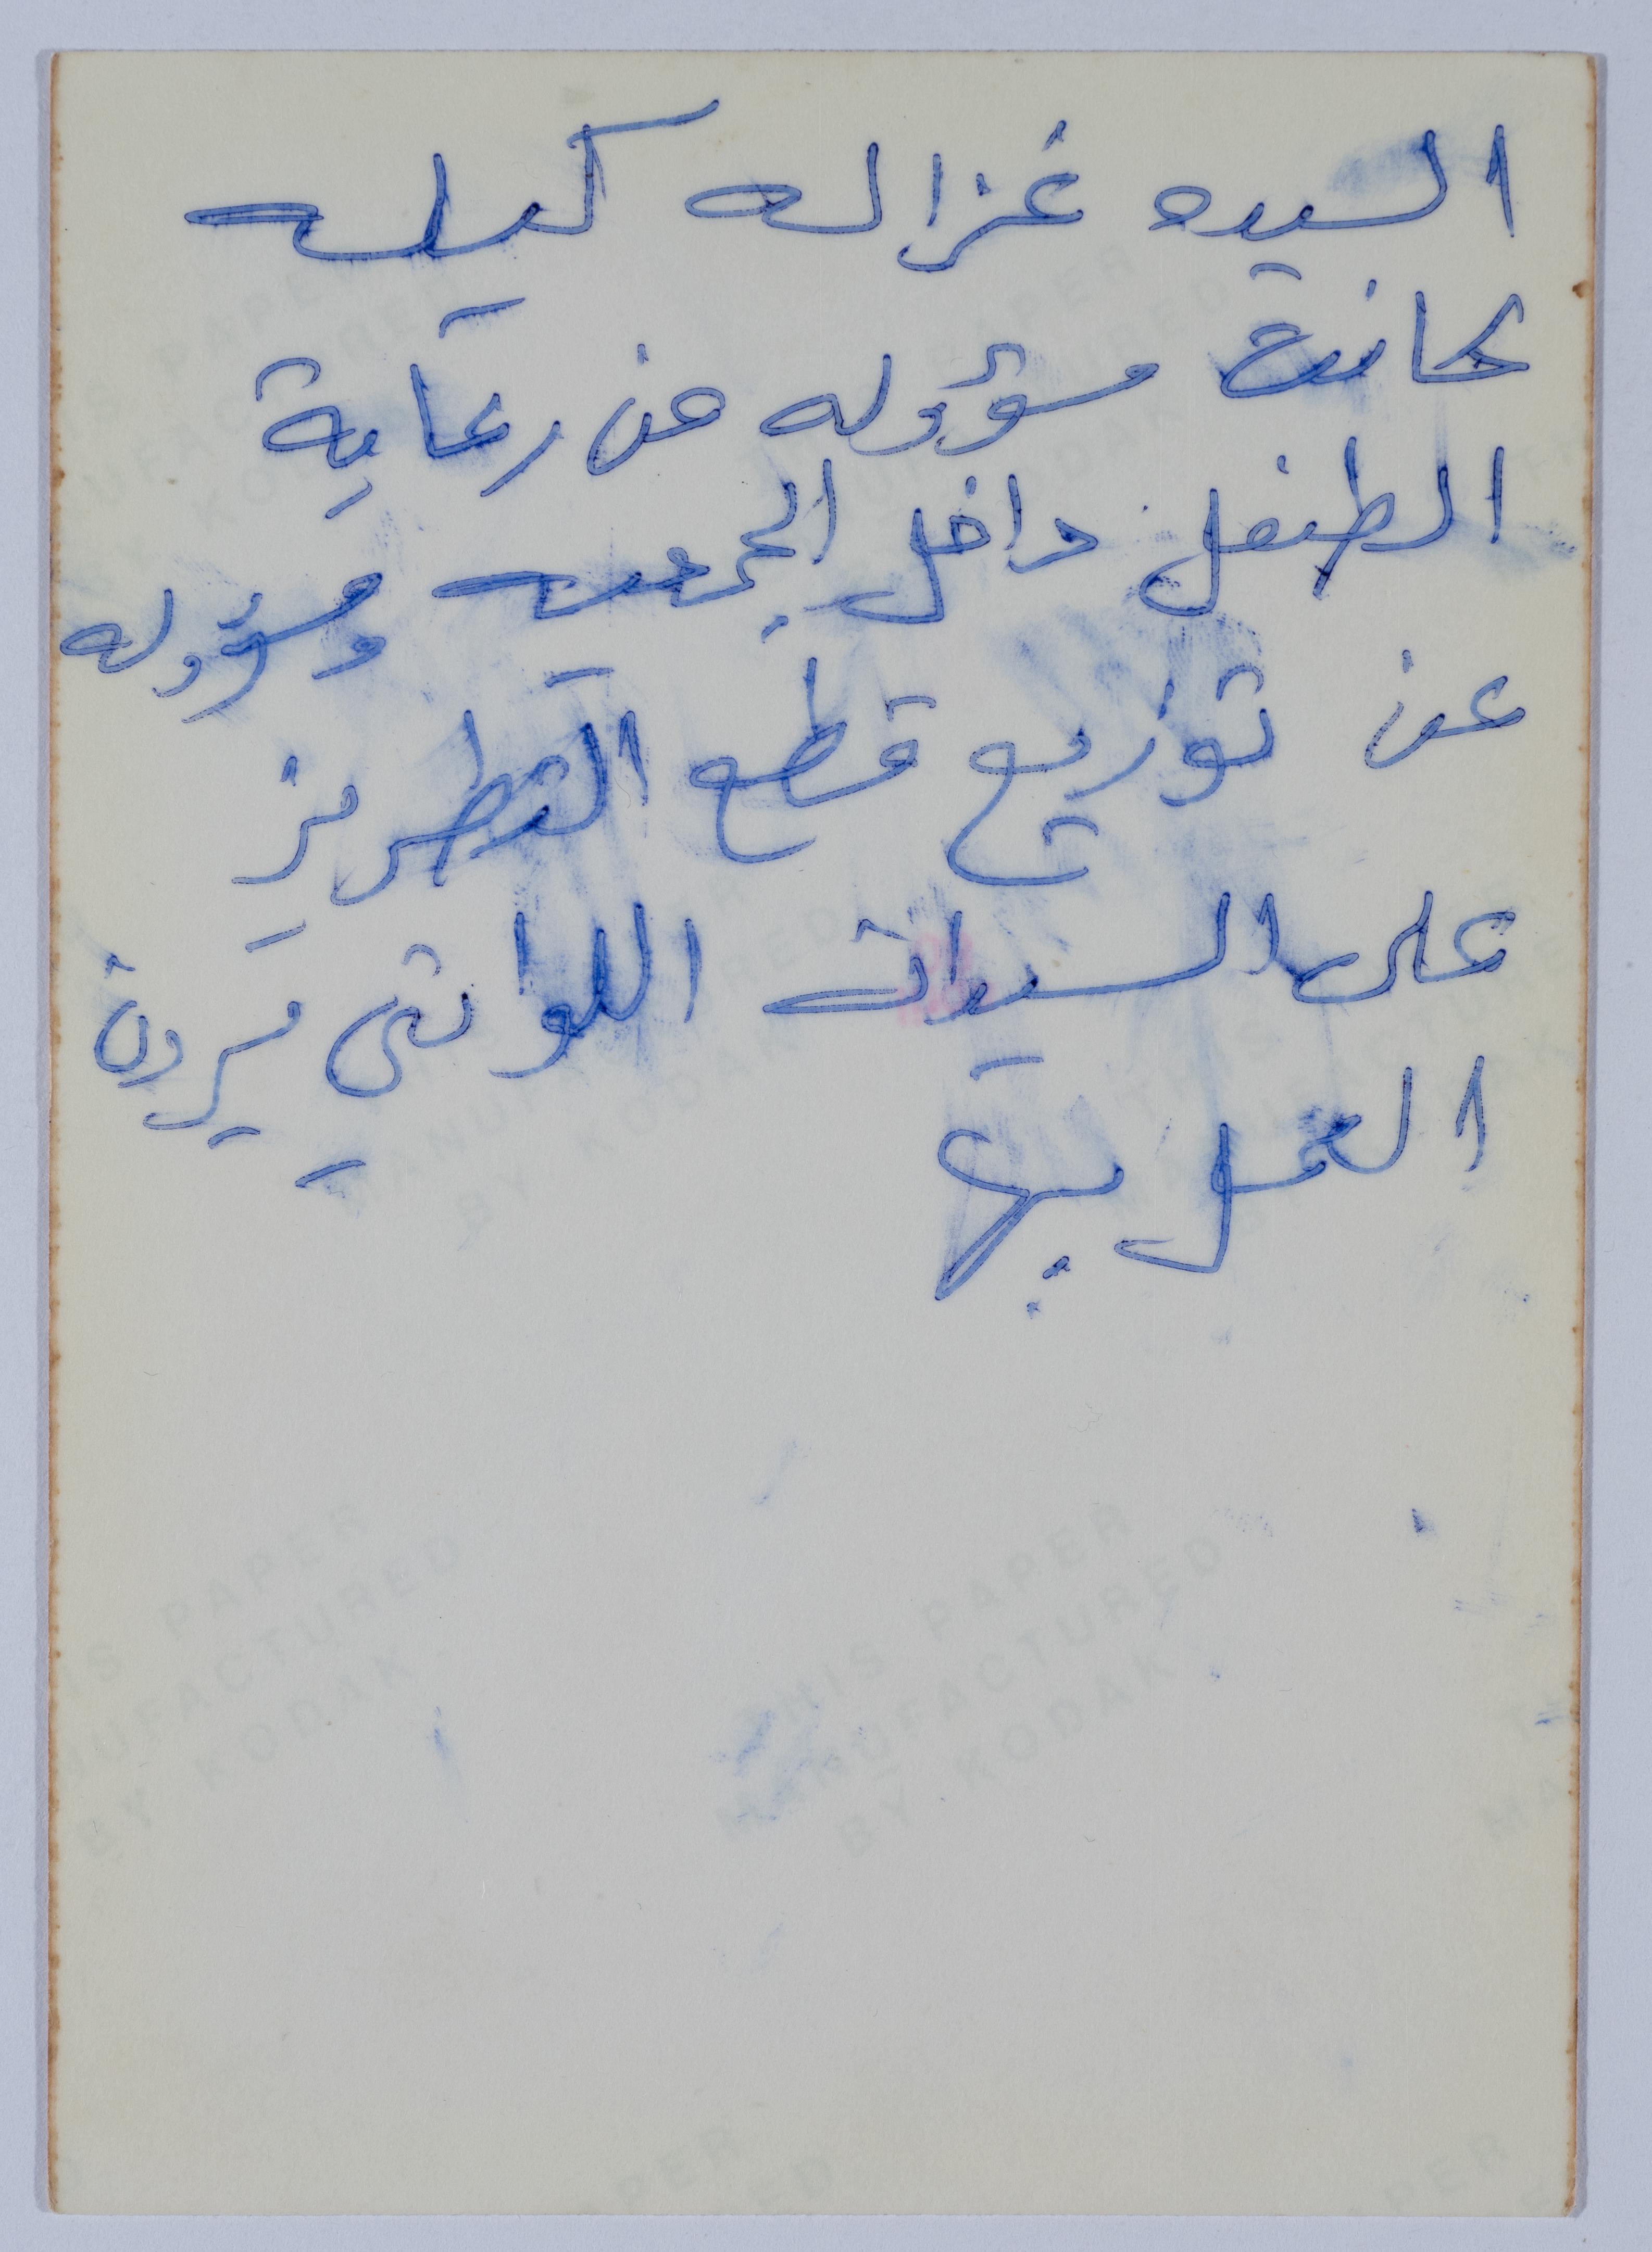 السيده غزاله كيله
كانت مسؤوله عن رعاية
الطفل داخل الجمعيه ومسؤوله
عن توزيع قطع التطريز
على السيدات اللواتي يردن
العمل بها
THIS PAPER
MANUFACTURED
BY KODAK